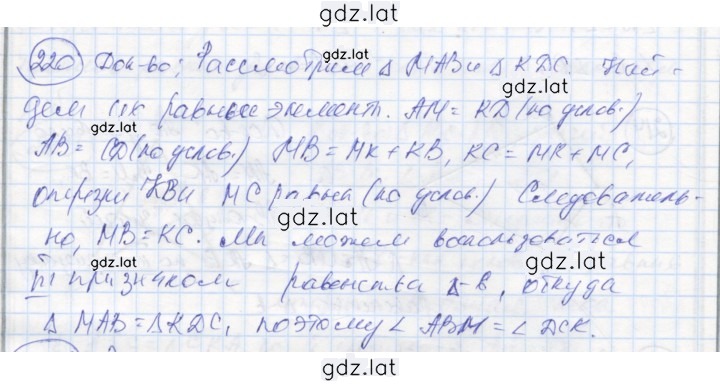 gdz.lat
220 Док-во: Рассмотрим Δ MAB и Δ KDC. Най-
gdz.lat
дем их равные элемент. AM = KD (по услов.)
gdz.lat
AB = CD (по услов.) MB = MK + KB, KC = MK + MC,
отрезки KB и MC равны (по услов.) Следователь-
gdz.lat
но, MB = KC. Мы можем воспользоваться
gdz.lat
III признаком равенства Δ-в, откуда
Δ MAB = Δ KDC, поэтому ∠ ABM = ∠ DCK.
gdz.lat
gdz.lat